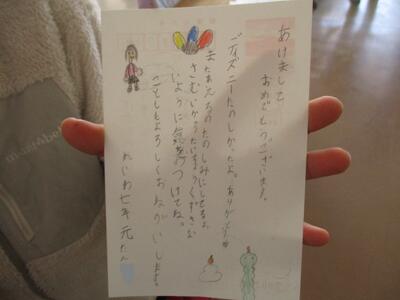 あけまして
おめでとうございます。
ディズニーたのしかったよ。ありがとう。
またあえるのたのしみにしてるね
さむいからたいちょうくずさな
いように気をつけてね。
ことしもよろしくおねがいします。
れいわ七年元たん